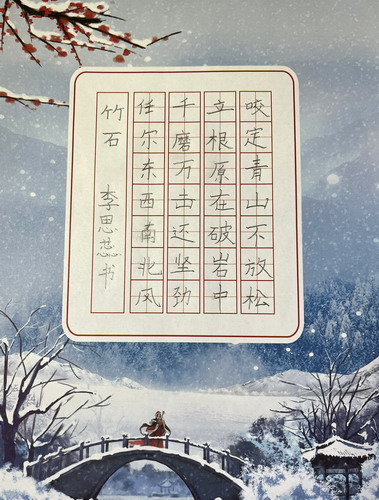 咬定青山不放松
立根原在破岩中
千磨万击还坚劲
任尔东西南北风
竹石
李思蕊书